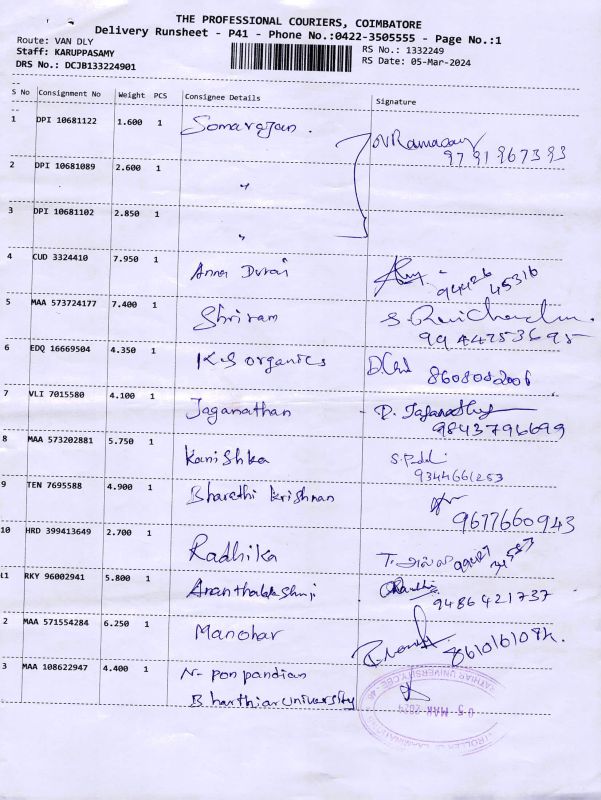 THE PROFESSIONAL COURIERS, COIMBATORE
Delivery Runsheet - P41 - Phone No.:0422-3505555 - Page No.:1
Route: VAN DLY
RS No.: 1332249
Staff: KARUPPASAMY
RS Date: 05-Mar-2024
DRS No.: DCJB133224901
S No Consignment No Weight PCS Consignee Details Signature
1 DPI 10681122 1.600 1 Somarajan.
N Ramasamy
9791967393
2 DPI 10681089 2.600 1 "
3 DPI 10681102 2.850 1 "
4 CUD 3324410 7.950 1 Anna Durai
94426 45316
5 MAA 573724177 7.400 1 Shriram
9944753695
6 EDQ 16669504 4.350 1 K.S organics
8608082006
7 VLI 7015580 4.100 1 Jaganathan
9843796699
8 MAA 573202881 5.750 1 Kanishka
9344661253
9 TEN 7695588 4.900 1 Bharathi krishnan
9677660943
10 HRD 399413649 2.700 1 Radhika
11 RKY 96002941 5.800 1
9486421737
2 MAA 571554284 6.250 1 Manohar
3 MAA 108622947 4.400 1 N- ponpandian
Bharthiar University
05 MAR 2024